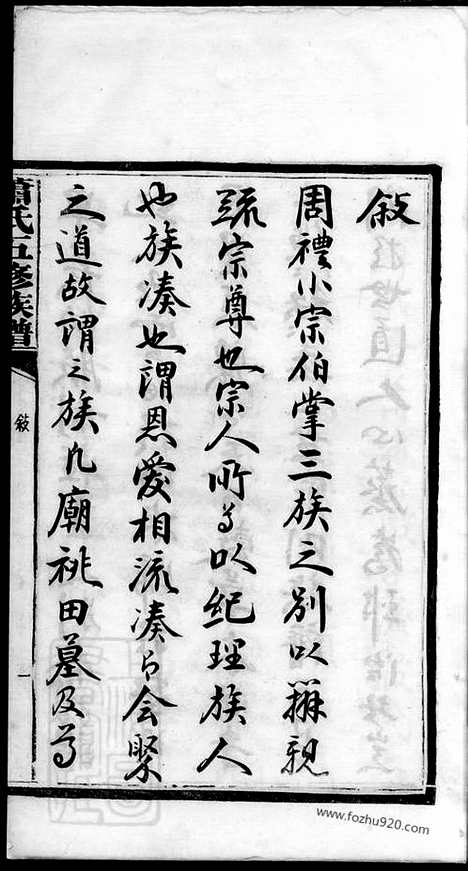 敘
周禮小宗伯掌三族之別以辨親
疏宗尊也宗人所為以紀理族人
也族湊也謂恩愛相流湊為會聚
之道故謂之族凡廟祧田墓及為
蕭氏五修族譜
敘
一
www.fozhu920.com